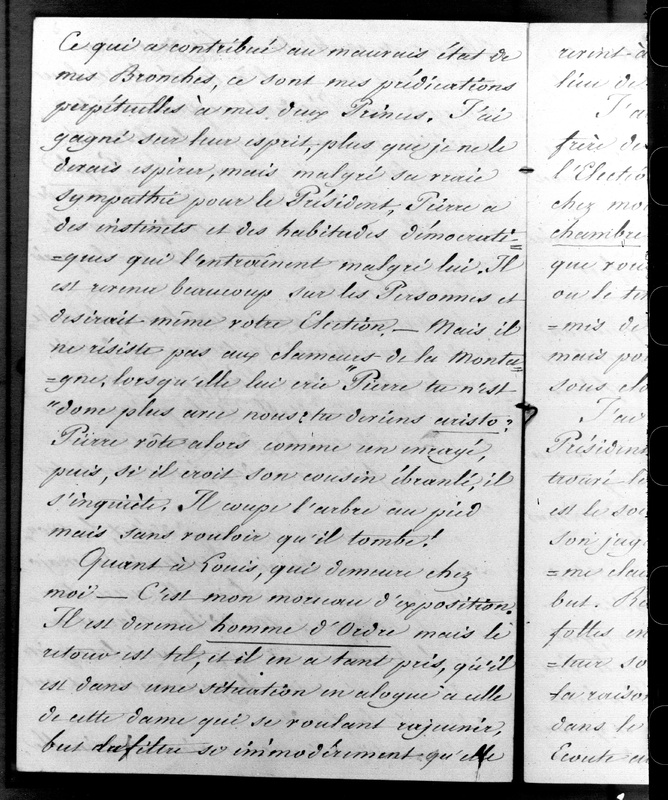 Ce qui a contribué au mauvais état de
mes Bronches, ce sont mes prédications
perpétuelles à mes deux Princes. J'ai
gagné sur leur esprit, plus que je ne le
devais espérer, mais malgré sa vraie
sympathie pour le Président, Pierre a
des instincts et des habitudes démocrati=
=ques qui l'entraînent malgré lui. Il
est revenu beaucoup sur les Personnes et
desirait même votre Election. — Mais il
ne résiste pas aux clameurs de la Monta=
=gne, lorsqu'elle lui crie "Pierre tu n'est
"donc plus avec nous? tu deviens aristo?
Pierre vote alors comme un enragé,
puis, si il croit son cousin ébranlé, il
s'inquiète. Il coupe l'arbre au pied
mais sans vouloir qu'il tombe!
Quant à Louis, qui demeure chez
moi — C'est mon morceau d'exposition.
Il est devenu homme d'Ordre mais le
retour est tel, et il en a tant pris, qu'il
est dans une situation analogue à celle
de cette dame qui se voulant rajeunir,
but du filtre si immodérément qu'elle
revint à
lieu de
J'a
frère de
l'Electio
chez mo
chambre
que vou
ou le te
=mis de
mais po
sous cl
J'ai
Président
trouvé le
est le so
son jug
=me clai
but. B
folles en
=tuer so
la raiso
dans le
Ecoute au